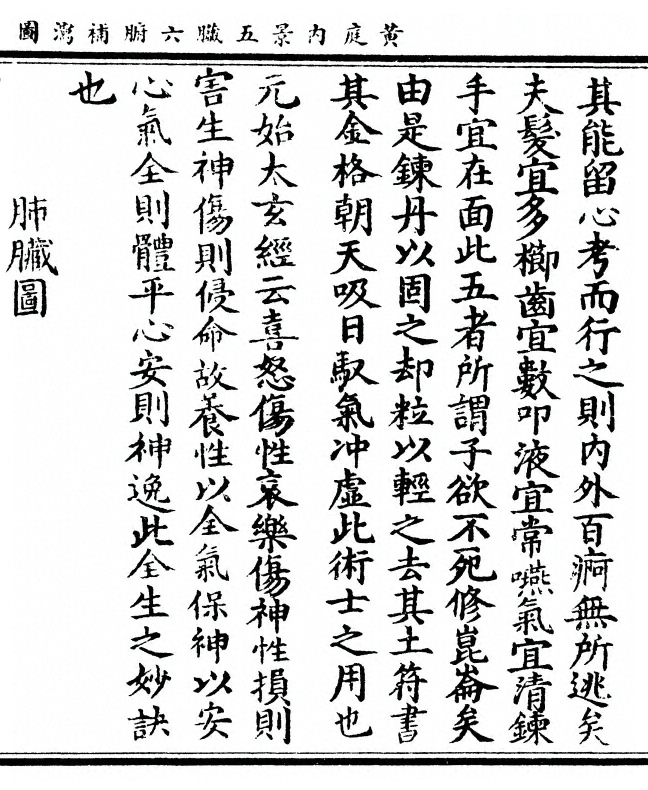 黄庭内景五臟六腑補瀉圖
其能留心考而行之則内外百痾無所逃矣
夫髮宜多櫛齒宜數叩液宜常嚥氣宜清鍊
手宜在面此五者所謂子欲不死修崑崙矣
由是鍊丹以固之却粒以輕之去其土符書
其金格朝天吸日馭氣冲虛此術士之用也
元始太玄經云喜怒傷性哀樂傷神性損則
害生神傷則侵命故養性以全氣保神以安
心氣全則體平心安則神逸此全生之妙訣
也
肺臟圖